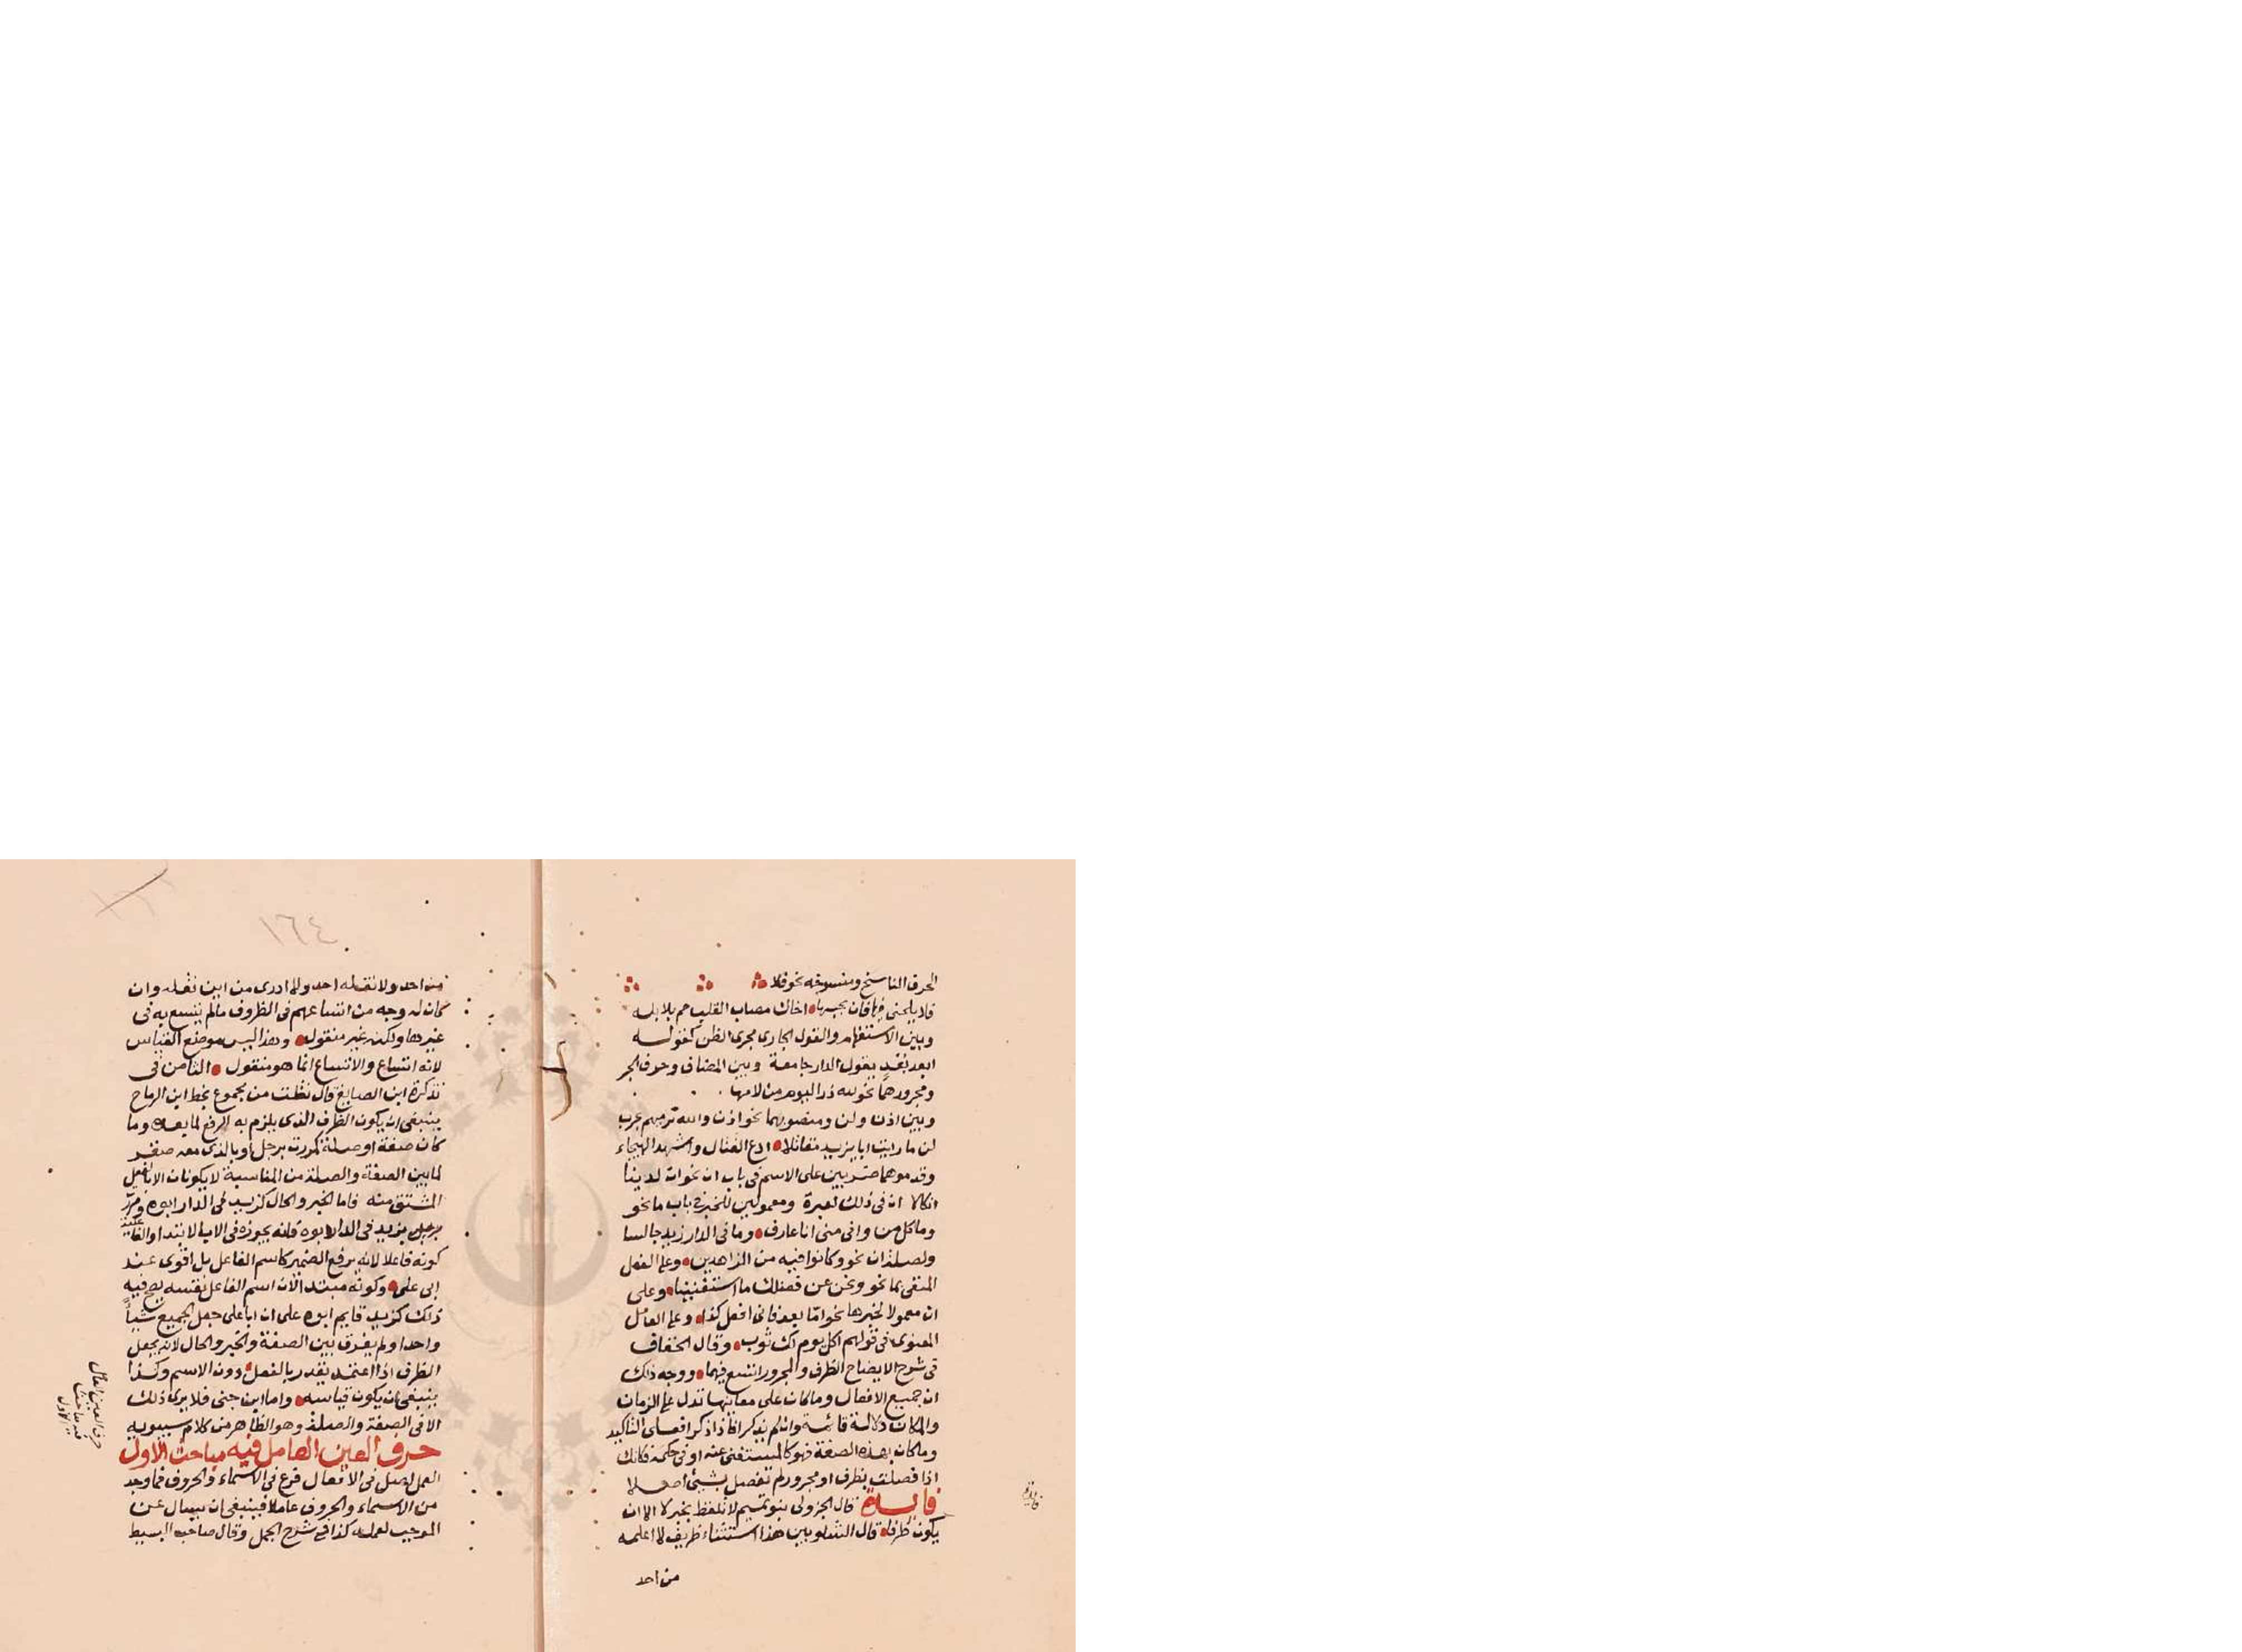 الحرف الناسخ ومنسوخه نحو فلا
فلا يلحنى فيها فان بحبها اخاك مصاب القلب جم بلابله
وبين الاستفهام والقول الجارى مجرى الظن كقوله
ابعد بُعْدٍ يقول الدار جامعة وبين المضاف وحرف الجر
ومجرورهما نحو لله در اليوم من لامها
وبين اذن ولن ومنصوبهما نحو اذن والله نرميهم بحرب
لن ما رايت ابا يزيد مقاتلا ادع القتال واشهد الهيجاء
وقدموهما خبرين على الاسم فى باب ان نحو ان لدينا
انكالا ان فى ذلك لعبرة ومعمولين للخبر فى باب ما نحو
وما كل من وافى منى انا عارف وما فى الدار زيد جالسا
ولصلة ان نحو وكانوا فيه من الزاهدين وعلى الفعل
المنفى بما نحو ونحن عن فضلك ما استغنينا وعلى
ان معمولا لخبرها نحو امّا بعد فانى افعل كذا وعلى العامل
المعنوى فى قولهم اكل يوم لك ثوب وقال الخفاف
فى شرح الايضاح الظرف والمجرور اتسع فيهما ووجه ذلك
ان جميع الافعال وما كان على معانيها تدل على الزمان
والمكان دلالة قائمة وان لم يذكرا فاذا ذكرا فعلى التاكيد
وما كان بهذه الصفة فهو كالمستغنى عنه او فى حكمه فكانك
اذا فصلت بظرف او مجرور لم تفصل بشيئ اصلا
فايدة قال الجزولى بنو تميم لا تلفظ بخبر لا الا ان
يكون ظرفا قال الشلوبين هذا استثناء ظريف لا اعلمه
من احد
فايدة
١٦٤
من احد ولا نقله احد ولا ادرى من اين نقله وان
كان له وجه من اتساعهم فى الظروف ما لم يتسع به فى
غيرها ولكنه غير منقول وهذا ليس موضع القياس
لانه اتساع والاتساع انما هو منقول الثامن فى
تذكرة ابن الصايغ قال نقلت من مجموع بخط ابن الرماح
ينبغى ان يكون الظرف الذى يلزم به الرفع لما بعده وما
كان صفة او صلة كمررت برجل او بالذى معه صقر
لما بين الصفة والصلة من المناسبة لا يكونان الا بالفعل
المشتق منه فاما الخبر والحال كزيد فى الدار ابوه ومررت
بزيد فى الدار ابوه فانه يجوز فى الاب الابتدا والفاعلية
كونه فاعلا لانه يرفع الضمير كاسم الفاعل بل اقوى عند
ابى على وكونه مبتدا لان اسم الفاعل نفسه يصح فيه
ذلك كزيد قايم ابوه على ان ابا على جعل الجميع شياً
واحدا ولم يفرق بين الصفة والخبر والحال لانه يجعل
الظرف اذا اعتمد يقدر بالفعل دون الاسم وكذا
ينبغى ان يكون قياسه واما ابن جنى فلا يرى ذلك
الا فى الصفة والصلة وهو الظاهر من كلام سيبويه
حرف العين العامل فيه مباحث الاول
العمل اصل فى الافعال فرع فى الاسماء والحروف فما وجد
من الاسماء والحروف عاملا فينبغى ان يسال عن
الموجب لعمله كذا فى شرح الجمل وقال صاحب البسيط
حرف العين العامل
فيه مباحث
الاول